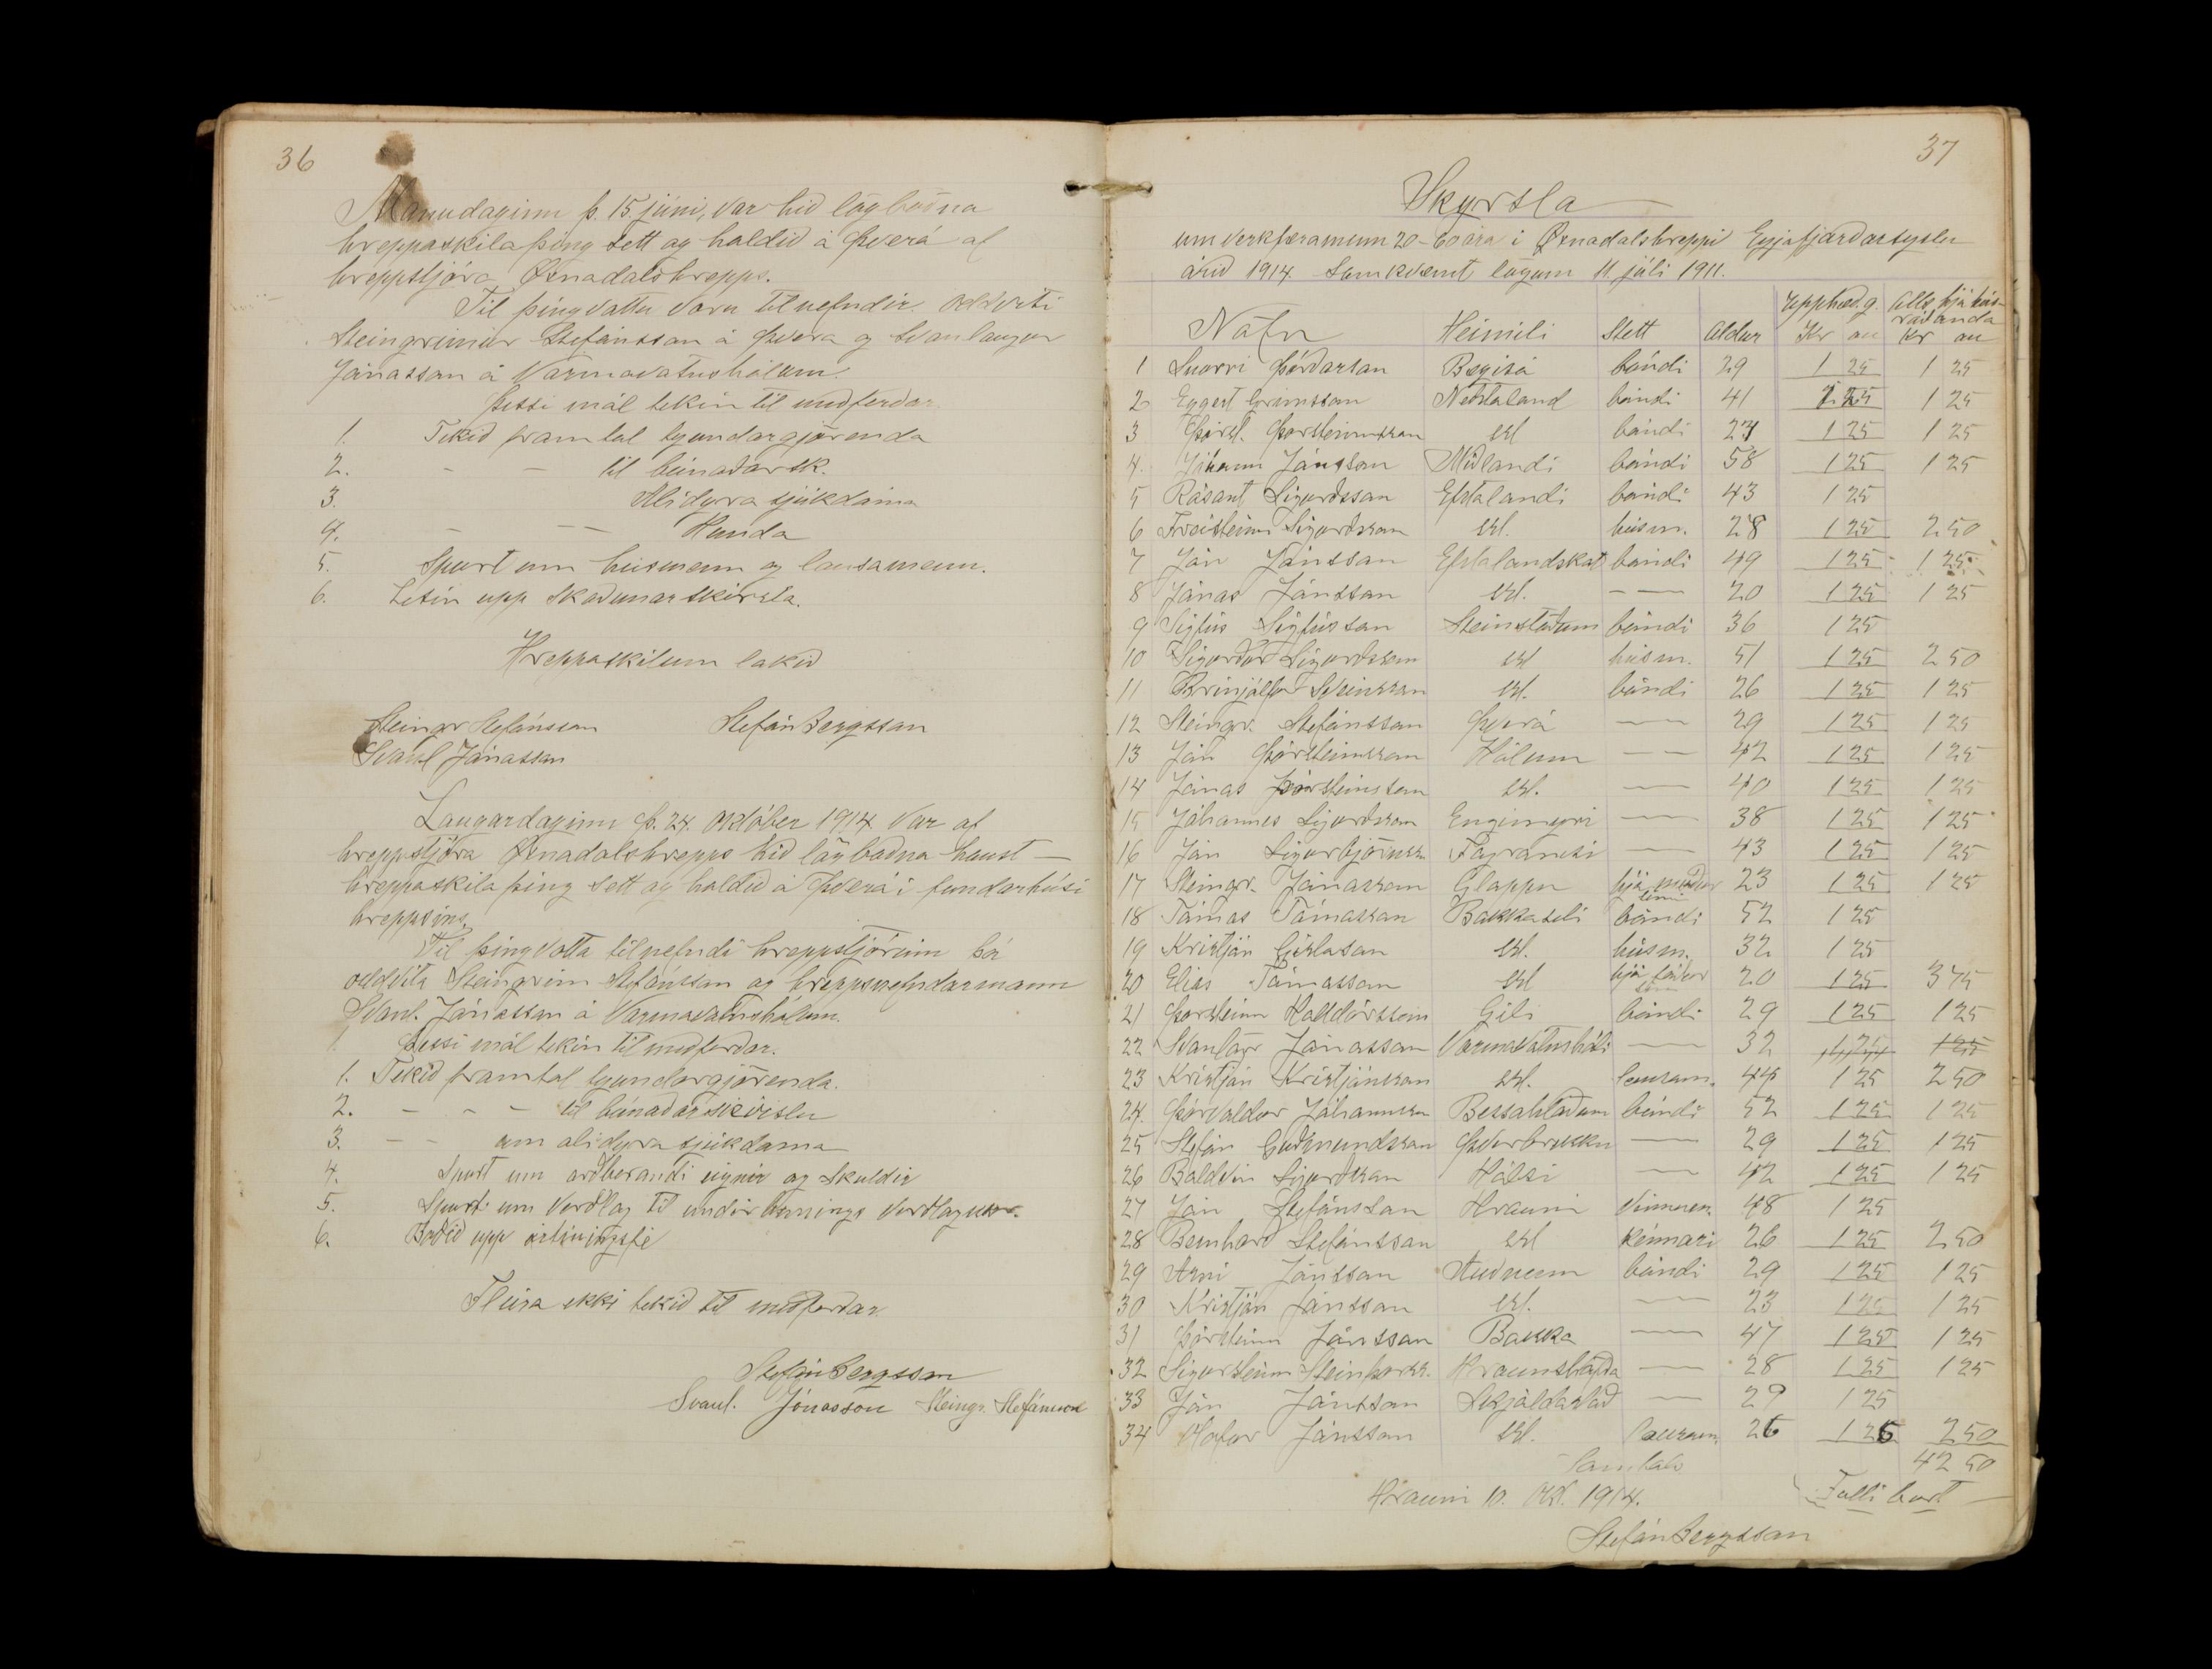 36
Manudaginn þ. 15 júni, var hid lögboðna
hreppaskilaþing sett og haldið á Þverá af
hreppstjóra Öxnadalshrepps.
Til þingvottu voru tilnefndir oddviti
Steingrimur Stefánsson á Þverá og Svanlaugur
Jónasson á Varmavatnshólum.
Þessi mál tekin til meðferdar
1. Tekið framtal tyundargjörenda
2. - - til búnaðarsk.
3. Alidyra sjúkdóma
4. - - - Hunda
5. Spurt um húsmenn og lausamenn.
6. Lesin upp Skoðunarskirsla.
Hreppaskilum lokið
Steingr Stefánsson Stefán Bergsson
Svanl Jónasson
Laugardaginn þ. 24. október 1914 var af
hreppstjóra Öxnadalshrepps hid lögboðna haust-
hreppaskilaþing sett og haldið á Þverá í fundarhúsi
hreppsins.
Til þingvotta tilnefndi hreppstjórinn þá
oddvita Steingrim Stefánsson og hreppsnefndarmann
Svanl. Jónasson á Varmavatnshólum.
Þessi mál tekin til meðferdar.
1. Tekið framtal tyundargjörenda.
2. - - - til búnaðarskirslu
3. - - um alidyra sjúkdoma
4. Spurt um arðberandi eignir og skuldir
5. Spurt um verðlag til undirbunings verðlagsskr.
6. Boðið upp
Fleira ekki tekið til meðferðar
Stefán Bergsson
Svanl. Jónasson Steingr. Stefánsson
37
Skyrsla
um verkfæramenn 20-60 ára i Öxnadalshreppi Eyjafjarðarsyslu
árið 1914 Samkvæmt lögum 11 júli 1911.
Nöfn Heimili Stett Aldur upphæð g. Kr au Alls hjá hús-ráðanda kr au
1 Snorri Þórðarson Bægisá bóndi 29 1 25 1 25
2 Eggert Grimsson Neðstaland bóndi 41 1 25 1 25
3 Þorst. Þorsteinsson sst bóndi 27 1 25 1 25
4. Jóhann Jónsson Miðlandi bóndi 58 1 25 1 25
5 Rósant Sigurðsson Efstalandi bóndi 43 1 25
6 Freisteinn Sigurðsson sst. húsm. 28 1 25 2 50
7 Jón Jónsson Efstalandskot bóndi 49 1 25 1 25
8 Jónas Jónsson sst. — 20 1 25 1 25
9 Sigfús Sigfússon Steinstöðum bóndi 36 1 25
10 Sigurður Sigurðsson sst húsm. 51 1 25 2 50
11 Brinjólfur Sveinsson sst. bóndi 26 1 25 1 25
12 Steingr. Stefánsson Þverá — 29 1 25 1 25
13 Jón Þorsteinsson Hólum — 42 1 25 1 25
14 Jónas Þorsteinsson sst. — 40 1 25 1 25
15 Jóhannes Sigurðsson Engimyri — 38 1 25 1 25
16 Jón Sigurbjörnss Fagranesi — 43 1 25 1 25
17 Steingr. Jónasson Gloppu hjá móður sinni 23 1 25 1 25
18 Tómas Tómasson Bakkaseli bóndi 52 1 25
19 Kristján Gislason sst. húsm. 32 1 25
20 Elias Tómasson sst hjá föður sin 20 1 25 3 75
21 Þorsteinn Halldórsson Gili bóndi 29 1 25 1 25
22 Svanlögr Jónasson Varmavatnshóli — 32 1 25 1 25
23 Kristján Kristjánsson sst. lausam. 44 1 25 2 50
24. Þorvaldur Jóhannsson Bessahlöðum bóndi 52 1 25 1 25
25 Stefán Guðmundsson Þverbrekku — 29 1 25 1 25
26 Baldvin Sigurðsson Hálsi — 42 1 25 1 25
27 Jón Stefánsson Hrauni vinnum. 48 1 25
28 Bernharð Stefánsson sst kennari 26 1 25 2 50
29 Arni Jónsson Auðnum bóndi 29 1 25 1 25
30 Kristján Jónsson sst. — 23 1 25 1 25
31 Þorsteinn Jónsson Bakka — 47 1 25 1 25
32 Sigursteinn Steinþorss. Hraunshöfða — 28 1 25 1 25
33 Jón Jónsson Skjáldarstöð — 29 1 25
34 Jónsson sst. lausam. 26 1 25 2 50
Samtals 42 50
Hrauni 10. Okt. 1914. Falli burt
Stefán Bergsson